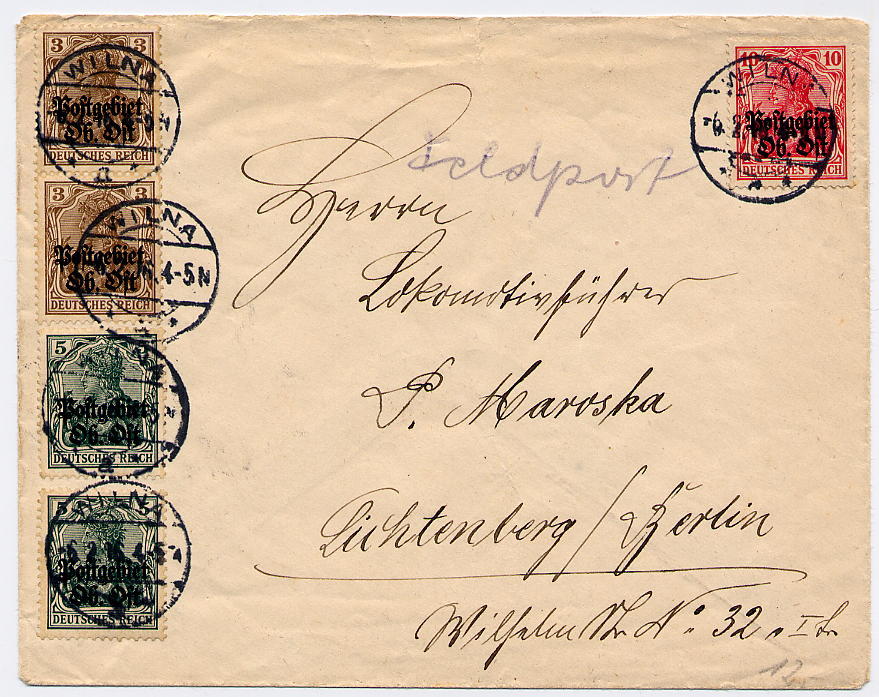 3 3
WILNA
Postgebiet
Ob. Ost
DEUTSCHES REICH
3 3
WILNA
4-5N
Postgebiet
Ob. Ost
DEUTSCHES REICH
5
Postgebiet
Ob. Ost
DEUTSCHES REICH
WILNA
6.2.16.4-5N
Postgebiet
Ob. Ost
DEUTSCHES REICH
10 10
WILN
Postgebiet
Ob. Ost
DEUTSCHES REICH
Feldpost
Herrn
Lokomotivführer
P. Maroska
Lichtenberg/Berlin
Wilhelm Str No 32
12